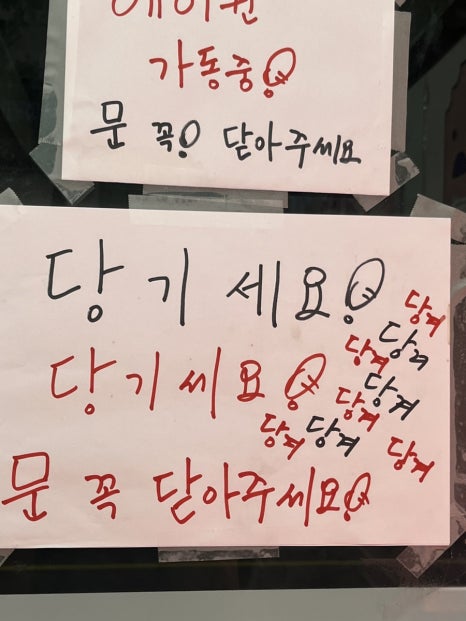 에어컨
가동중!
문 꼭! 닫아주세요
당기세요!
당겨
당겨
당기세요!
당겨
당겨
당겨
당겨
당겨
당겨
문 꼭 닫아주세요!